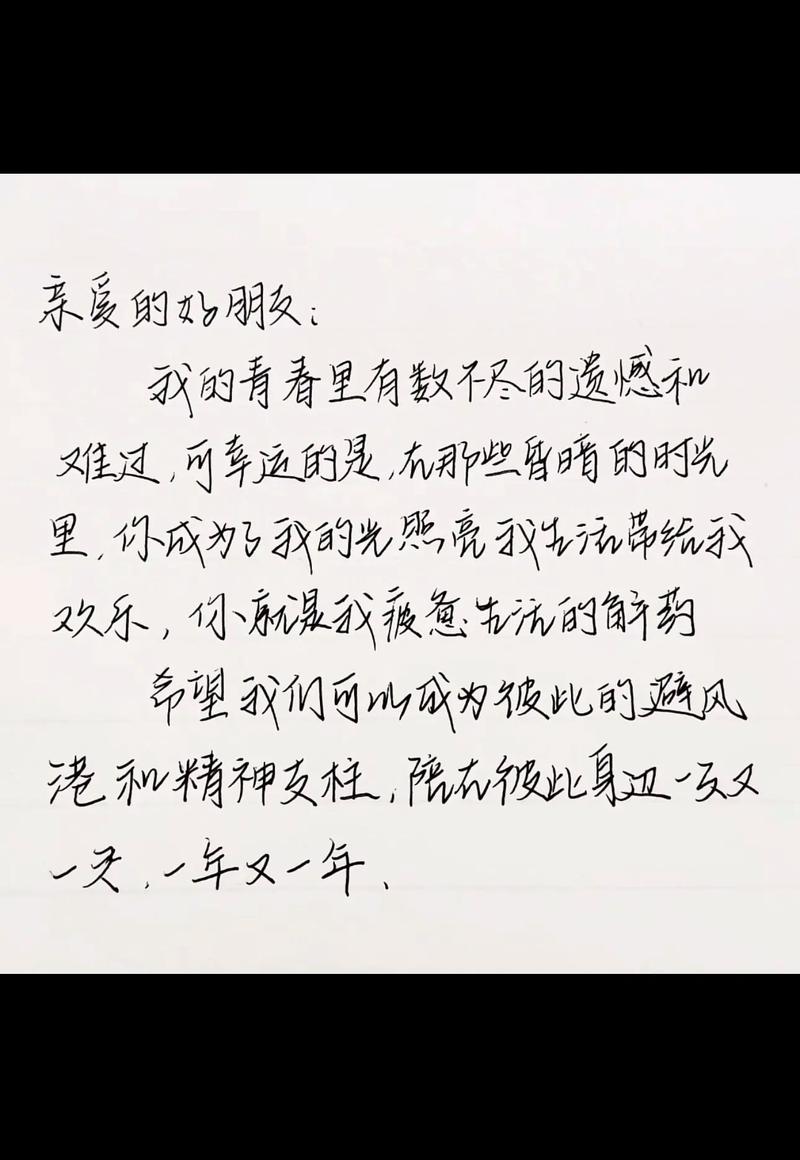 亲爱的好朋友：
我的青春里有数不尽的遗憾和
难过，可幸运的是，在那些昏暗的时光
里，你成为了我的光照亮我生活带给我
欢乐，你就是我疲惫生活的解药
希望我们可以成为彼此的避风
港和精神支柱，陪在彼此身边一天又
一天，一年又一年、